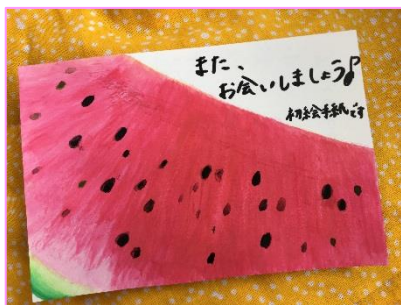 また、
お会いしましょう♪
初絵手紙です